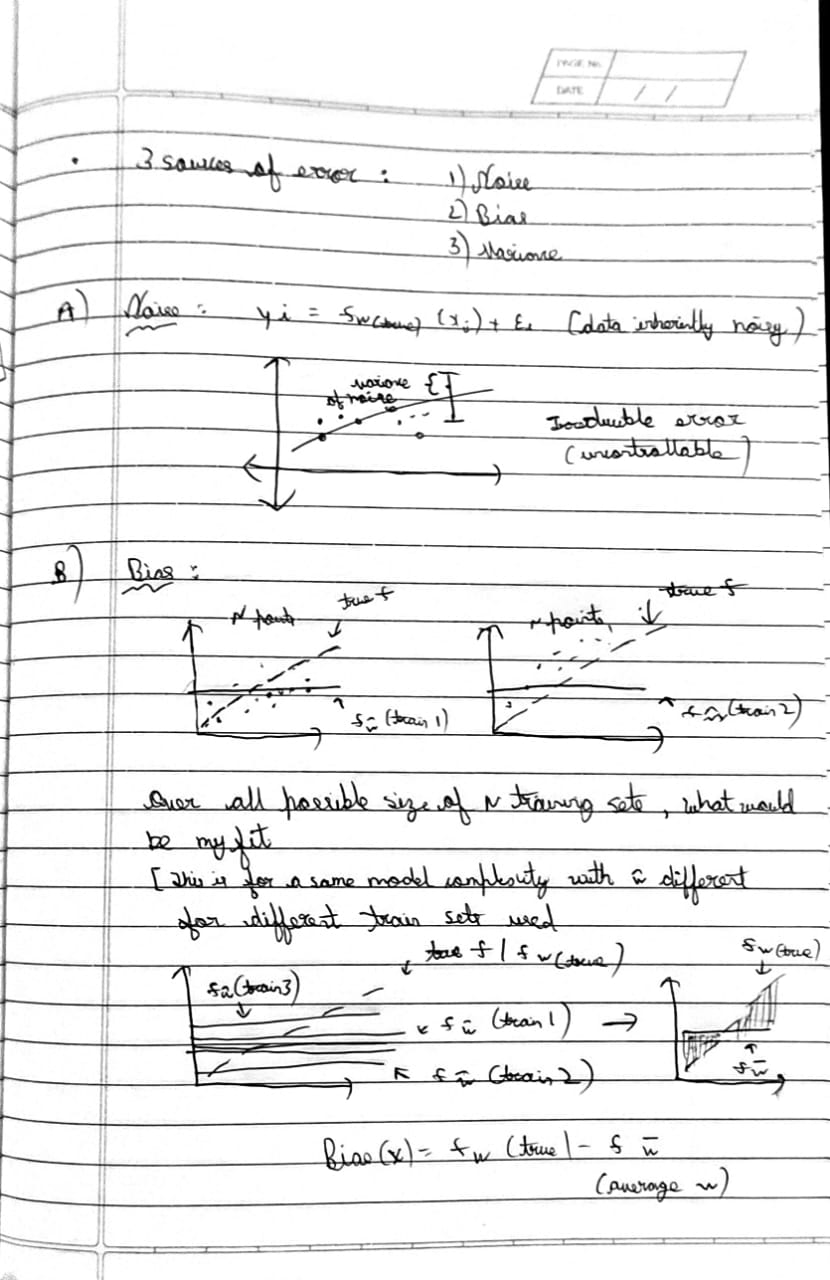 PAGE No.
DATE / /
• 3 sources of error : 1) Noise
2) Bias
3) Variance
A) Noise : yi = fw(true) (xi) + εi (data inherintly noisy)
variance
of noise {
Irreducible error
(uncontrollable)
B) Bias :
N points true f
N points true f
fŵ (train 1)
fŵ (train 2)
Over all possible size of N training sets, what would
be my fit
[ This is for a same model complexity with ŵ different
for different train sets used
true f / fw (true) fw (true)
fŵ (train 3)
fŵ (train 1) →
fŵ (train 2) fw̄
Bias (x) = fw (true) - f w̄
(average w)